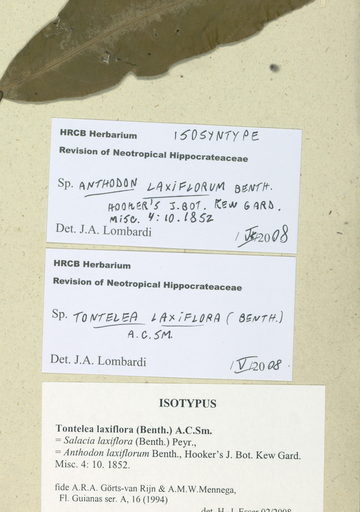 HRCB Herbarium ISOSYNTYPE
Revision of Neotropical Hippocrateaceae
Sp. ANTHODON LAXIFLORUM BENTH.
HOOKER'S J.BOT. KEW GARD.
MISC. 4:10.1852
Det. J.A. Lombardi / V/2008
HRCB Herbarium
Revision of Neotropical Hippocrateaceae
Sp. TONTELEA LAXIFLORA (BENTH.)
A.C.SM.
Det. J.A. Lombardi / V/2008
ISOTYPUS
Tontelea laxiflora (Benth.) A.C.Sm.
= Salacia laxiflora (Benth.) Peyr.,
= Anthodon laxiflorum Benth., Hooker's J. Bot. Kew Gard.
Misc. 4: 10. 1852.
fide A.R.A. Görts-van Rijn & A.M.W.Mennega,
Fl. Guianas ser. A, 16 (1994)
det. H.-J. Esser 02/2008